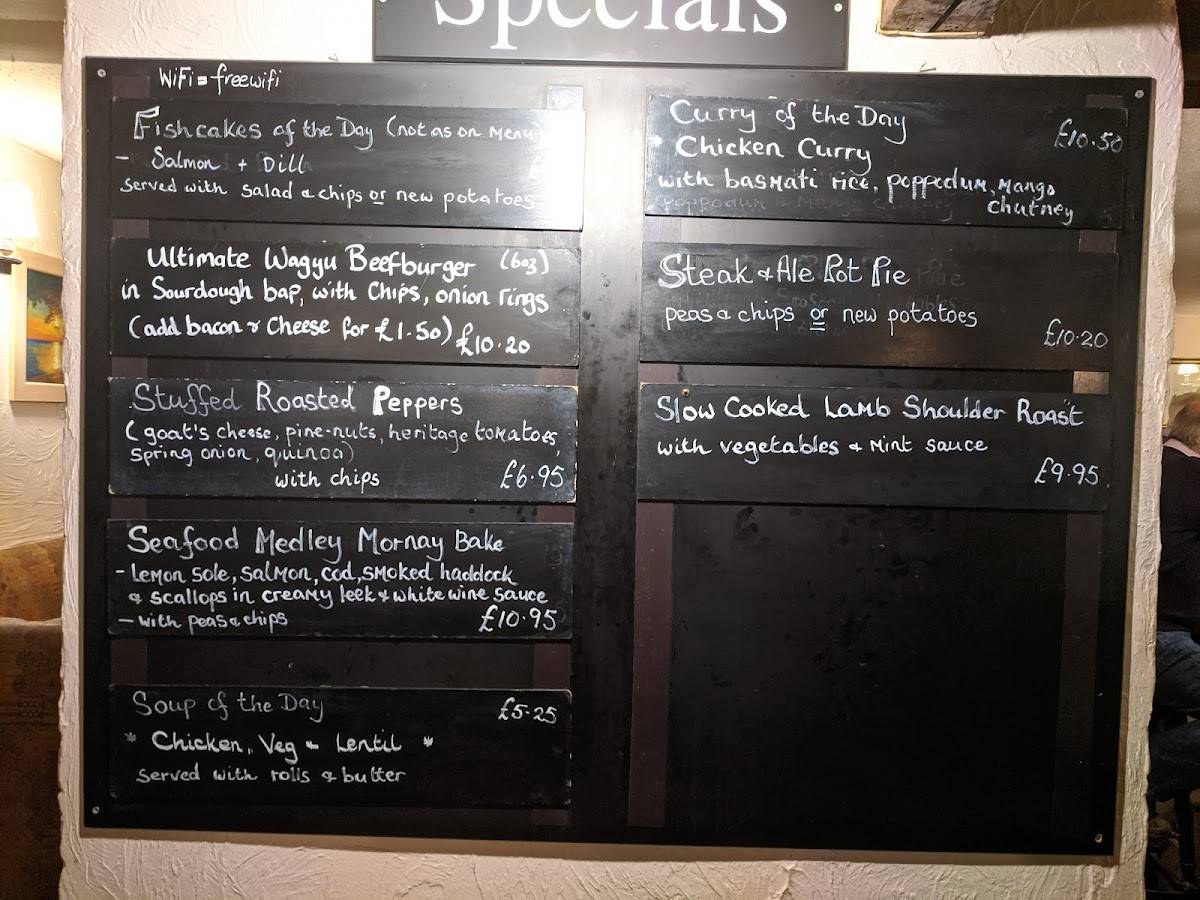 Specials
WiFi = freewifi
Fishcakes of the Day (not as on Menu)
- Salmon + Dill
Served with salad & chips or new potatoes
Ultimate Wagyu Beefburger (6oz)
in Sourdough bap, with Chips, onion rings
(add bacon & Cheese for £1.50) £10.20
Stuffed Roasted Peppers
(goat's cheese, pine-nuts, heritage tomatoes,
spring onion, quinoa)
with chips £6.95
Seafood Medley Mornay Bake
- Lemon sole, salmon, cod, smoked haddock
& scallops in creamy leek & white wine sauce
- with peas & chips £10.95
Soup of the Day £5.25
* Chicken, Veg & Lentil *
Served with rolls & butter
Curry of the Day £10.50
* Chicken Curry
with basmati rice, poppodum, Mango
chutney
Steak & Ale Pot Pie
peas & chips or new potatoes
£10.20
Slow Cooked Lamb Shoulder Roast
with vegetables & Mint sauce
£9.95